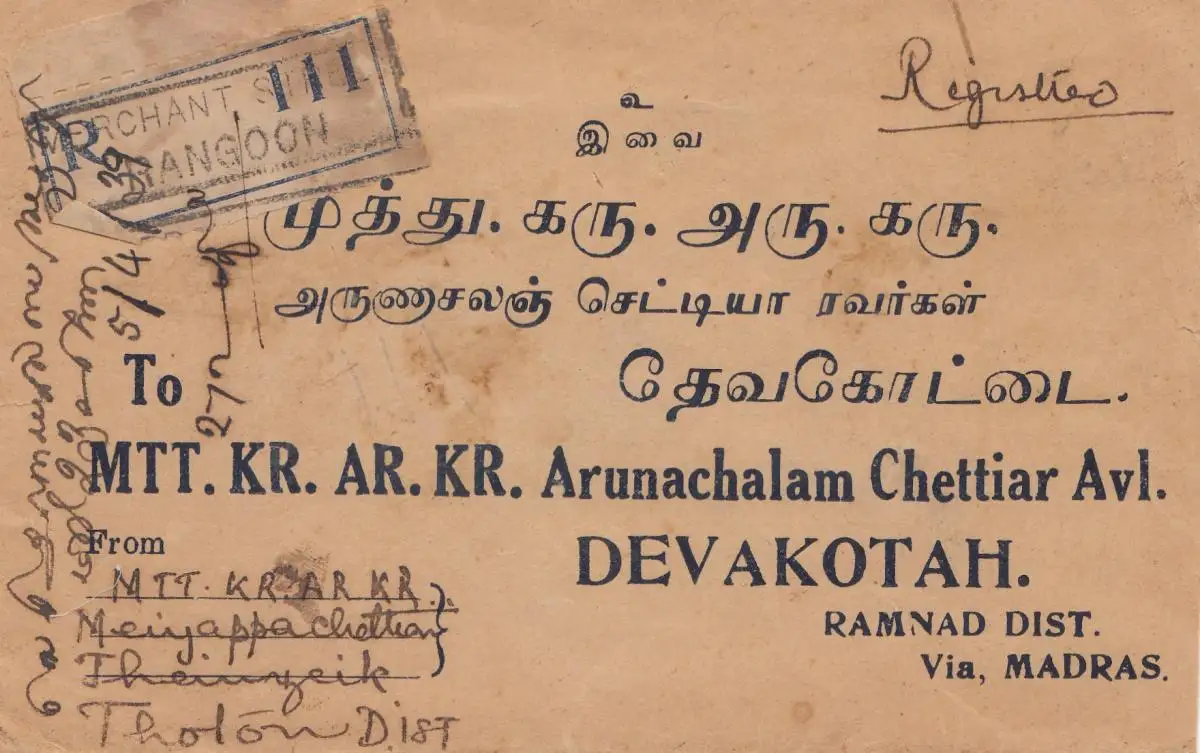 R 111
MERCHANT ST
RANGOON
Registered
உ
இவை
முத்து. கரு. அரு. கரு.
அருணாசலஞ் செட்டியா ரவர்கள்
தேவகோட்டை.
To
MTT. KR. AR. KR. Arunachalam Chettiar Avl.
DEVAKOTAH.
RAMNAD DIST.
Via, MADRAS.
From
MTT. KR. AR KR.
Meiyappa chettiar
Theinzeik
Thatōn Dist
5/4/39